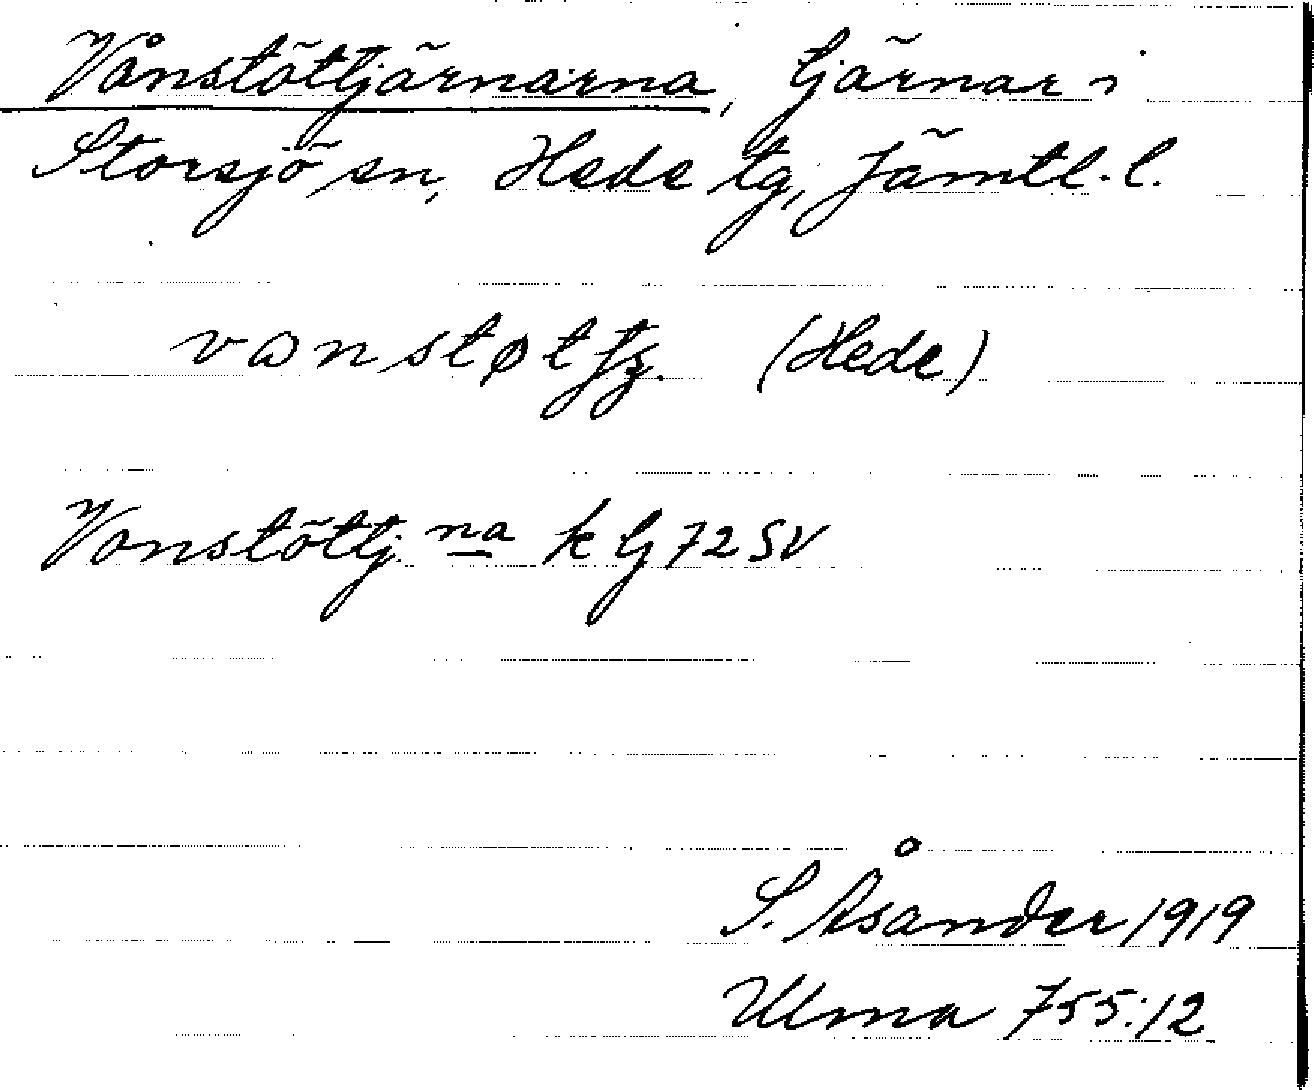 Vånstöttjärnarna, tjärnar i
Storsjö sn, Hede tg, Jämtl. l.
(Hede)
Vonstöttj. na k bj 72 SV
S. Åsander 1919
Ulma 755:12